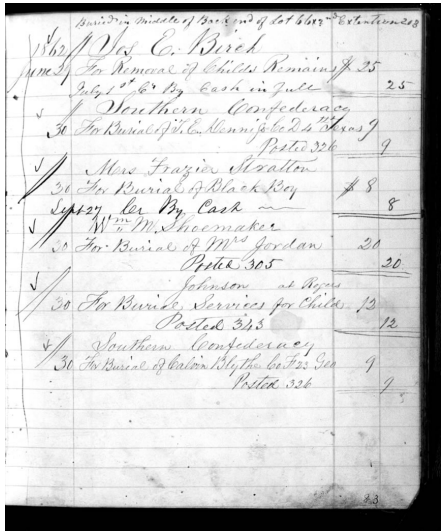 Buried in Middle of Back end of Lot 66 x 2nd Extention 203
1862 // Jos E. Birch
June 29 For Removal of Childs Remains $ 25
July 1st Cr By Cash in full 25
// Southern Confederacy
30 For Burial of T. E. Dennis Co D 4th Texas 9
Posted 326 9
// Mrs Frazier Stratton
30 For Burial of Black Boy $ 8
Sept 27 Cr By Cash 8
// Wm M. Shoemaker
30 For Burial of Mrs Jordan 20
Posted 305 20
Johnson at
30 For Burial Services for Child 12
Posted 343 12
// Southern Confederacy
30 For Burial of Calvin Blythe Co F 23 Geo 9
Posted 326 9
83